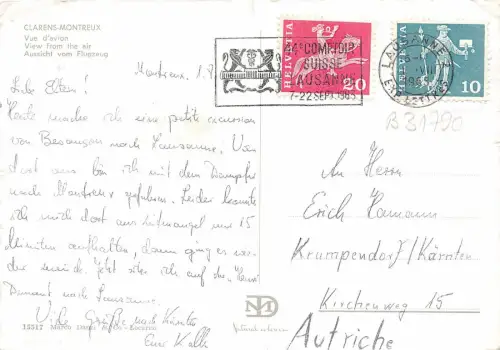 CLARENS-MONTREUX
Vue d'avion
View from the air
Aussicht vom Flugzeug
Montreux, 1.
Liebe Eltern!
Heute mache ich eine petite excursion
von Besançon nach Lausanne. Von
dort aus bin ich mit dem Dampfer
nach Montreux gefahren. Leider konnte
ich mich dort aus Zeitmangel nur 15
Minuten aufhalten, dann ging es wie-
der zurück. Jetzt sitze ich auf der "Henri
Dunant" nach Lausanne.
Viele Grüße nach Kärnten
Euer Kalli
44e COMPTOIR
SUISSE
LAUSANNE
7-22 SEPT. 1963
HELVETIA
20
LAUSANNE 1
EXP. LETTRES
HELVETIA
10
B31790
An Herrn
Erich Hamann
Krumpendorf/Kärnten
Kirchenweg 15
Autriche
13517